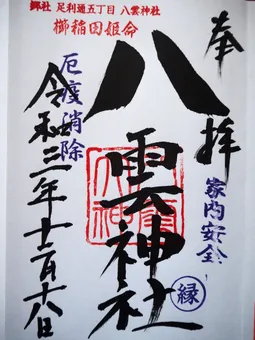 郷社 足利通五丁目 八雲神社
櫛稲田姫命
奉拝
家内安全
八雲神社
縁
厄度消除
令和三年十二月十八日